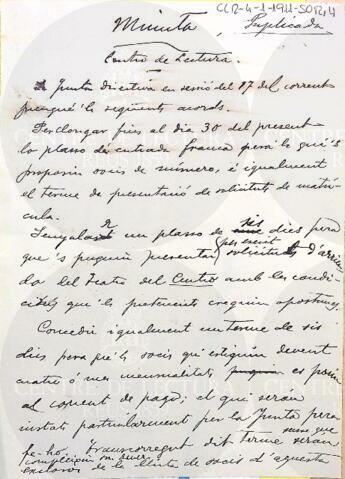 CLR-4-1-1911-SORT,4
Minuta, Suplicada
Centro de Lectura.
A Junta directiva en sessió del 17 del corrent
prengué 'ls següents acords.
Perllongar fins al dia 30 del present
lo plasso de entrada franca pera lo qui 's
proposin socis de número, é igualment
el terme de presentació de solicituts de matrí-
cula.
Senyalar un plasso de sis dies pera
que 's puguin presentar per escrit solicituts d'arrien-
do del Teatro del Centro amb les condi-
cións que 'ls pretenents creguin oportunes.
Concedir igualment un terme de sis
dies pera que 'ls socis qui estiguin devent
cuatre ó mes mensualitats es posin
al corrent de pago; el qui seran
instats particularment per la Junta pera
fe-ho. Transcorregut dit terme sens que
compleixin seran
exclosos de la llista de socis d'aquesta
CENTRE DE LECTURA
REUS 1859